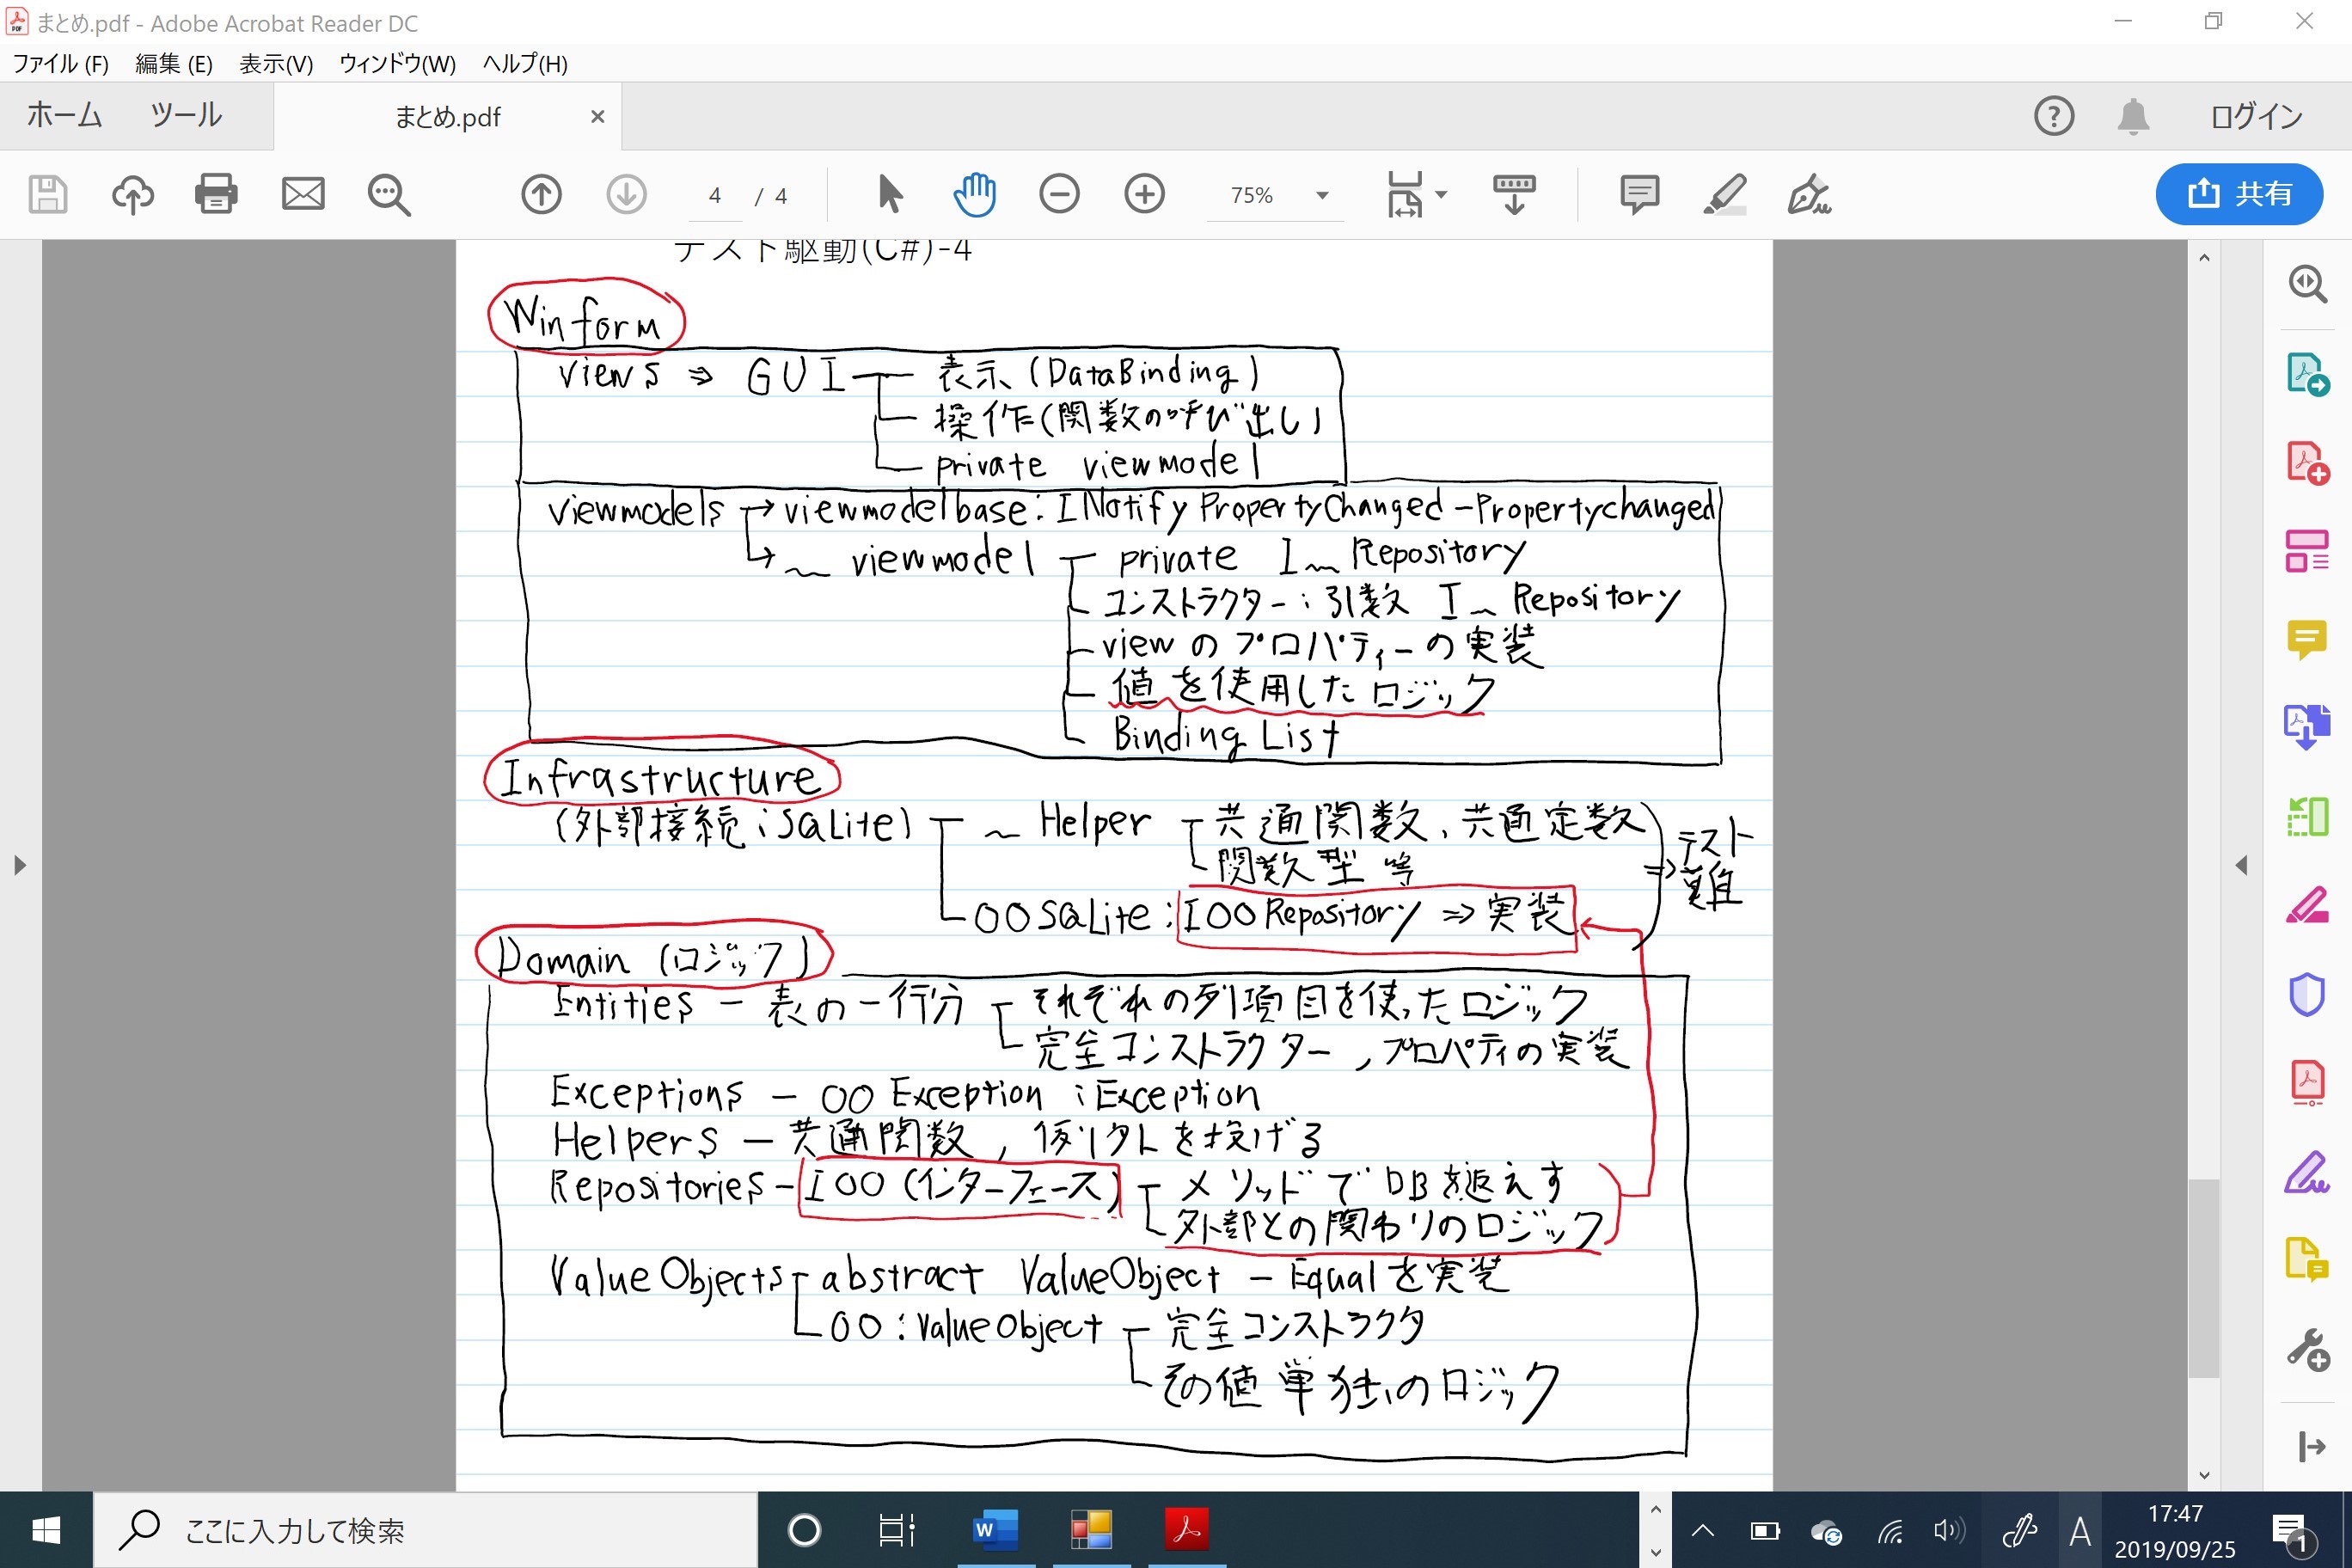 まとめ.pdf - Adobe Acrobat Reader DC
ファイル (F) 編集 (E) 表示(V) ウィンドウ(W) ヘルプ(H)
ホーム ツール まとめ.pdf × ? ログイン
4 / 4 75% 共有
テスト駆動(C#)-4
Winform
views ⇒ GUI 表示 (DataBinding)
操作(関数の呼び出し)
private viewmodel
viewmodels → viewmodelbase : INotifyPropertyChanged - Propertychanged
~ viewmodel private I~Repository
コンストラクター : 引数 I~Repository
viewのプロパティーの実装
値を使用したロジック
Binding List
Infrastructure
(外部接続 : SQLite) ~ Helper 共通関数、共通定数
関数型 等
⇒ テスト難
〇〇SQLite : I〇〇Repository ⇒ 実装
Domain (ロジック)
Entities - 表の一行分 それぞれの列項目を使ったロジック
完全コンストラクター , プロパティの実装
Exceptions - 〇〇Exception : Exception
Helpers - 共通関数 , 例外を投げる
Repositories - I〇〇 (インターフェース) メソッドでDBを返えす
外部との関わりのロジック
ValueObjects abstract ValueObject - Equalを実装
〇〇 : ValueObject 完全コンストラクタ
その値単独のロジック
ここに入力して検索
A 17:47
2019/09/25
1